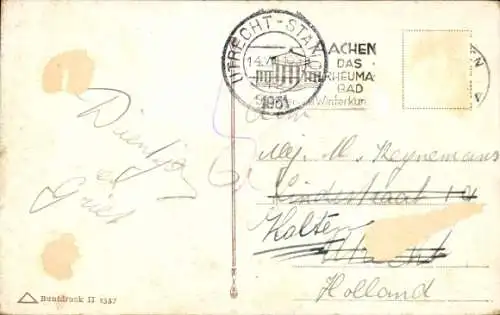 UTRECHT-STATION
14.7
1951
AACHEN
DAS
RHEUMA
BAD
Winterkur
Aan
Dientje
en
Griet
Mej. M. Reynemans
Lindestraat 12
Holten
Utrecht
Holland
Buntdruck II 1357